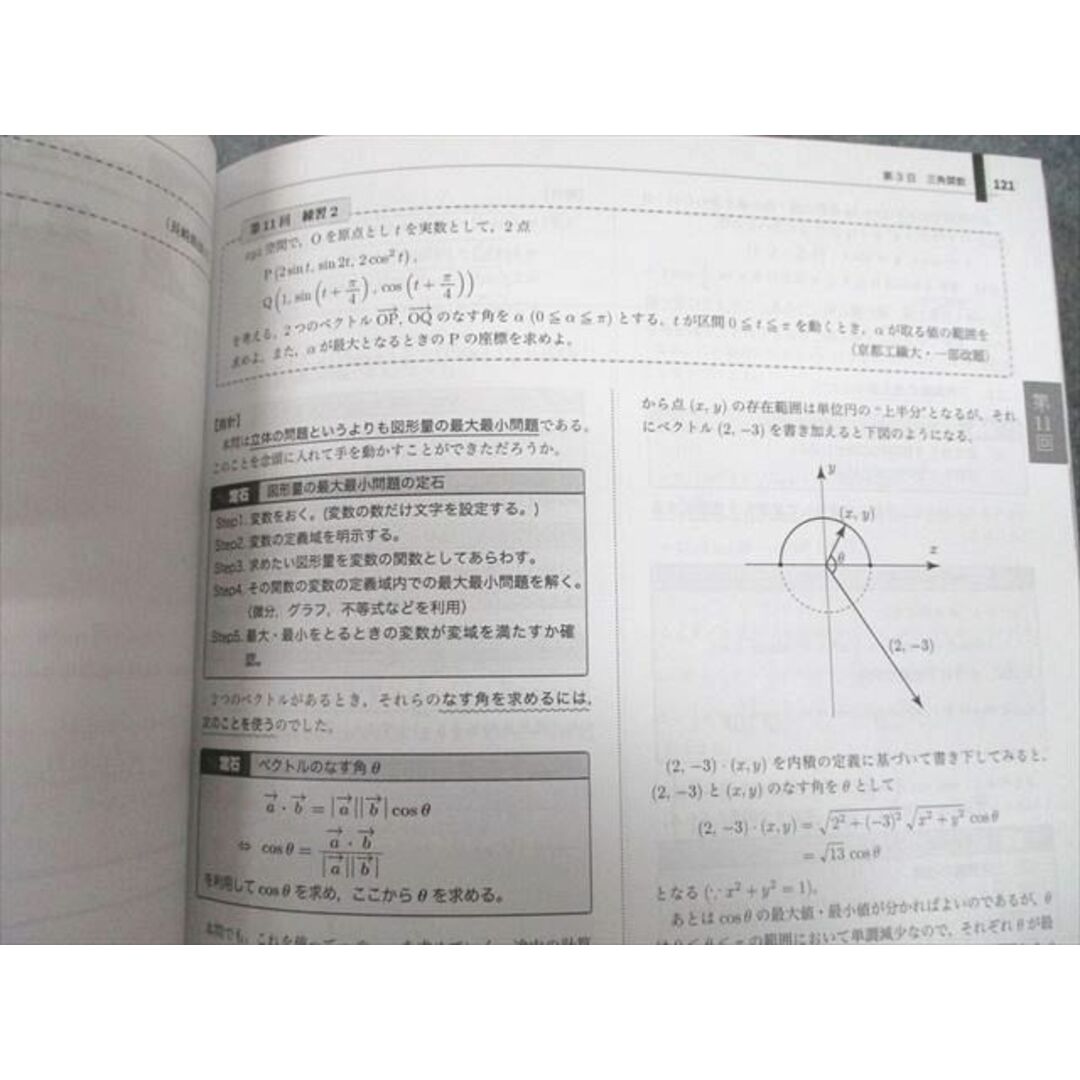 第3日 三角関数 121
第11回 練習2
xyz空間で，Oを原点としtを実数として，2点
P(2 sin t, sin 2t, 2 cos² t),
Q(1, sin(t+π/4), cos(t+π/4))
を考える。2つのベクトルOP→, OQ→のなす角をα(0≦α≦π)とする。tが区間0≦t≦πを動くとき，αが取る値の範囲を
求めよ。また，αが最大となるときのPの座標を求めよ。
（京都工繊大・一部改題）
【指針】
本問は立体の問題というよりも図形量の最大最小問題である。
このことを念頭に入れて手を動かすことができただろうか。
定石 図形量の最大最小問題の定石
Step1. 変数をおく。(変数の数だけ文字を設定する。)
Step2. 変数の定義域を明示する。
Step3. 求めたい図形量を変数の関数としてあらわす。
Step4. その関数の変数の定義域内での最大最小問題を解く。
（微分，グラフ，不等式などを利用）
Step5. 最大・最小をとるときの変数が変域を満たすか確
認。
2つのベクトルがあるとき，それらのなす角を求めるには，
次のことを使うのでした。
定石 ベクトルのなす角θ
a→・b→ = |a→||b→| cos θ
⇔ cos θ = a→・b→/|a→||b→|
を利用してcos θを求め，ここからθを求める。
から点(x, y)の存在範囲は単位円の“上半分”となるが，それ
にベクトル(2, −3)を書き加えると下図のようになる。
y
(x, y)
x
θ
(2, −3)
(2, −3)・(x, y)を内積の定義に基づいて書き下してみると，
(2, −3)と(x, y)のなす角をθとして
(2, −3)・(x, y) = √(2²+(−3)²) √(x²+y²) cos θ
= √13 cos θ
となる(∵ x²+y²=1)。
あとはcos θの最大値・最小値が分かればよいのであるが，θ
は0≦θ≦πの範囲において単調減少なので，それぞれθが最
第11回